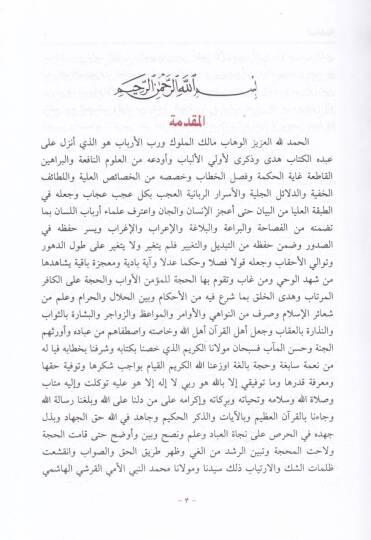 بسم الله الرحمن الرحيم
المقدمة
الحمد لله العزيز الوهاب مالك الملوك ورب الأرباب هو الذي أنزل على
عبده الكتاب هدى وذكرى لأولي الألباب وأودعه من العلوم النافعة والبراهين
القاطعة غاية الحكمة وفصل الخطاب وخصصه من الخصائص العلية واللطائف
الخفية والدلائل الجلية والأسرار الربانية العجب بكل عجب عجاب وجعله في
الطبقة العليا من البيان حتى أعجز الإنسان والجان واعترف علماء أرباب اللسان بما
تضمنه من الفصاحة والبراعة والبلاغة والإعراب والإغراب ويسر حفظه في
الصدور وضمن حفظه من التبديل والتغيير فلم يتغير ولا يتغير على طول الدهور
وتوالي الأحقاب وجعله قولا فصلا وحكما عدلا وآية بادية ومعجزة باقية يشاهدها
من شهد الوحي ومن غاب وتقوم بها الحجة للمؤمن الأواب والحجة على الكافر
المرتاب وهدى الخلق بما شرع فيه من الأحكام وبين الحلال والحرام وعلم من
شعائر الإسلام وصرف من النواهي والأوامر والمواعظ والزواجر والبشارة بالثواب
والنذارة بالعقاب وجعل أهل القرآن أهل الله وخاصته واصطفاهم من عباده وأورثهم
الجنة وحسن المآب فسبحان مولانا الكريم الذي خصنا بكتابه وشرفنا بخطابه فيا له
من نعمة سابغة وحجة بالغة اوزعنا الله الكريم القيام بواجب شكرها وتوفية حقها
ومعرفة قدرها وما توفيقي إلا بالله هو ربي لا إله إلا هو عليه توكلت وإليه متاب
وصلاة الله وسلامه وتحياته وبركاته وإكرامه على من دلنا على الله وبلغنا رسالة الله
وجاءنا بالقرآن العظيم وبالآيات والذكر الحكيم وجاهد في الله حق الجهاد وبذل
جهده في الحرص على نجاة العباد وعلم ونصح وبين وأوضح حتى قامت الحجة
ولاحت المحجة وتبين الرشد من الغي وظهر طريق الحق والصواب وانقشعت
ظلمات الشك والارتياب ذلك سيدنا ومولانا محمد النبي الأمي القرشي الهاشمي
- ٣ -